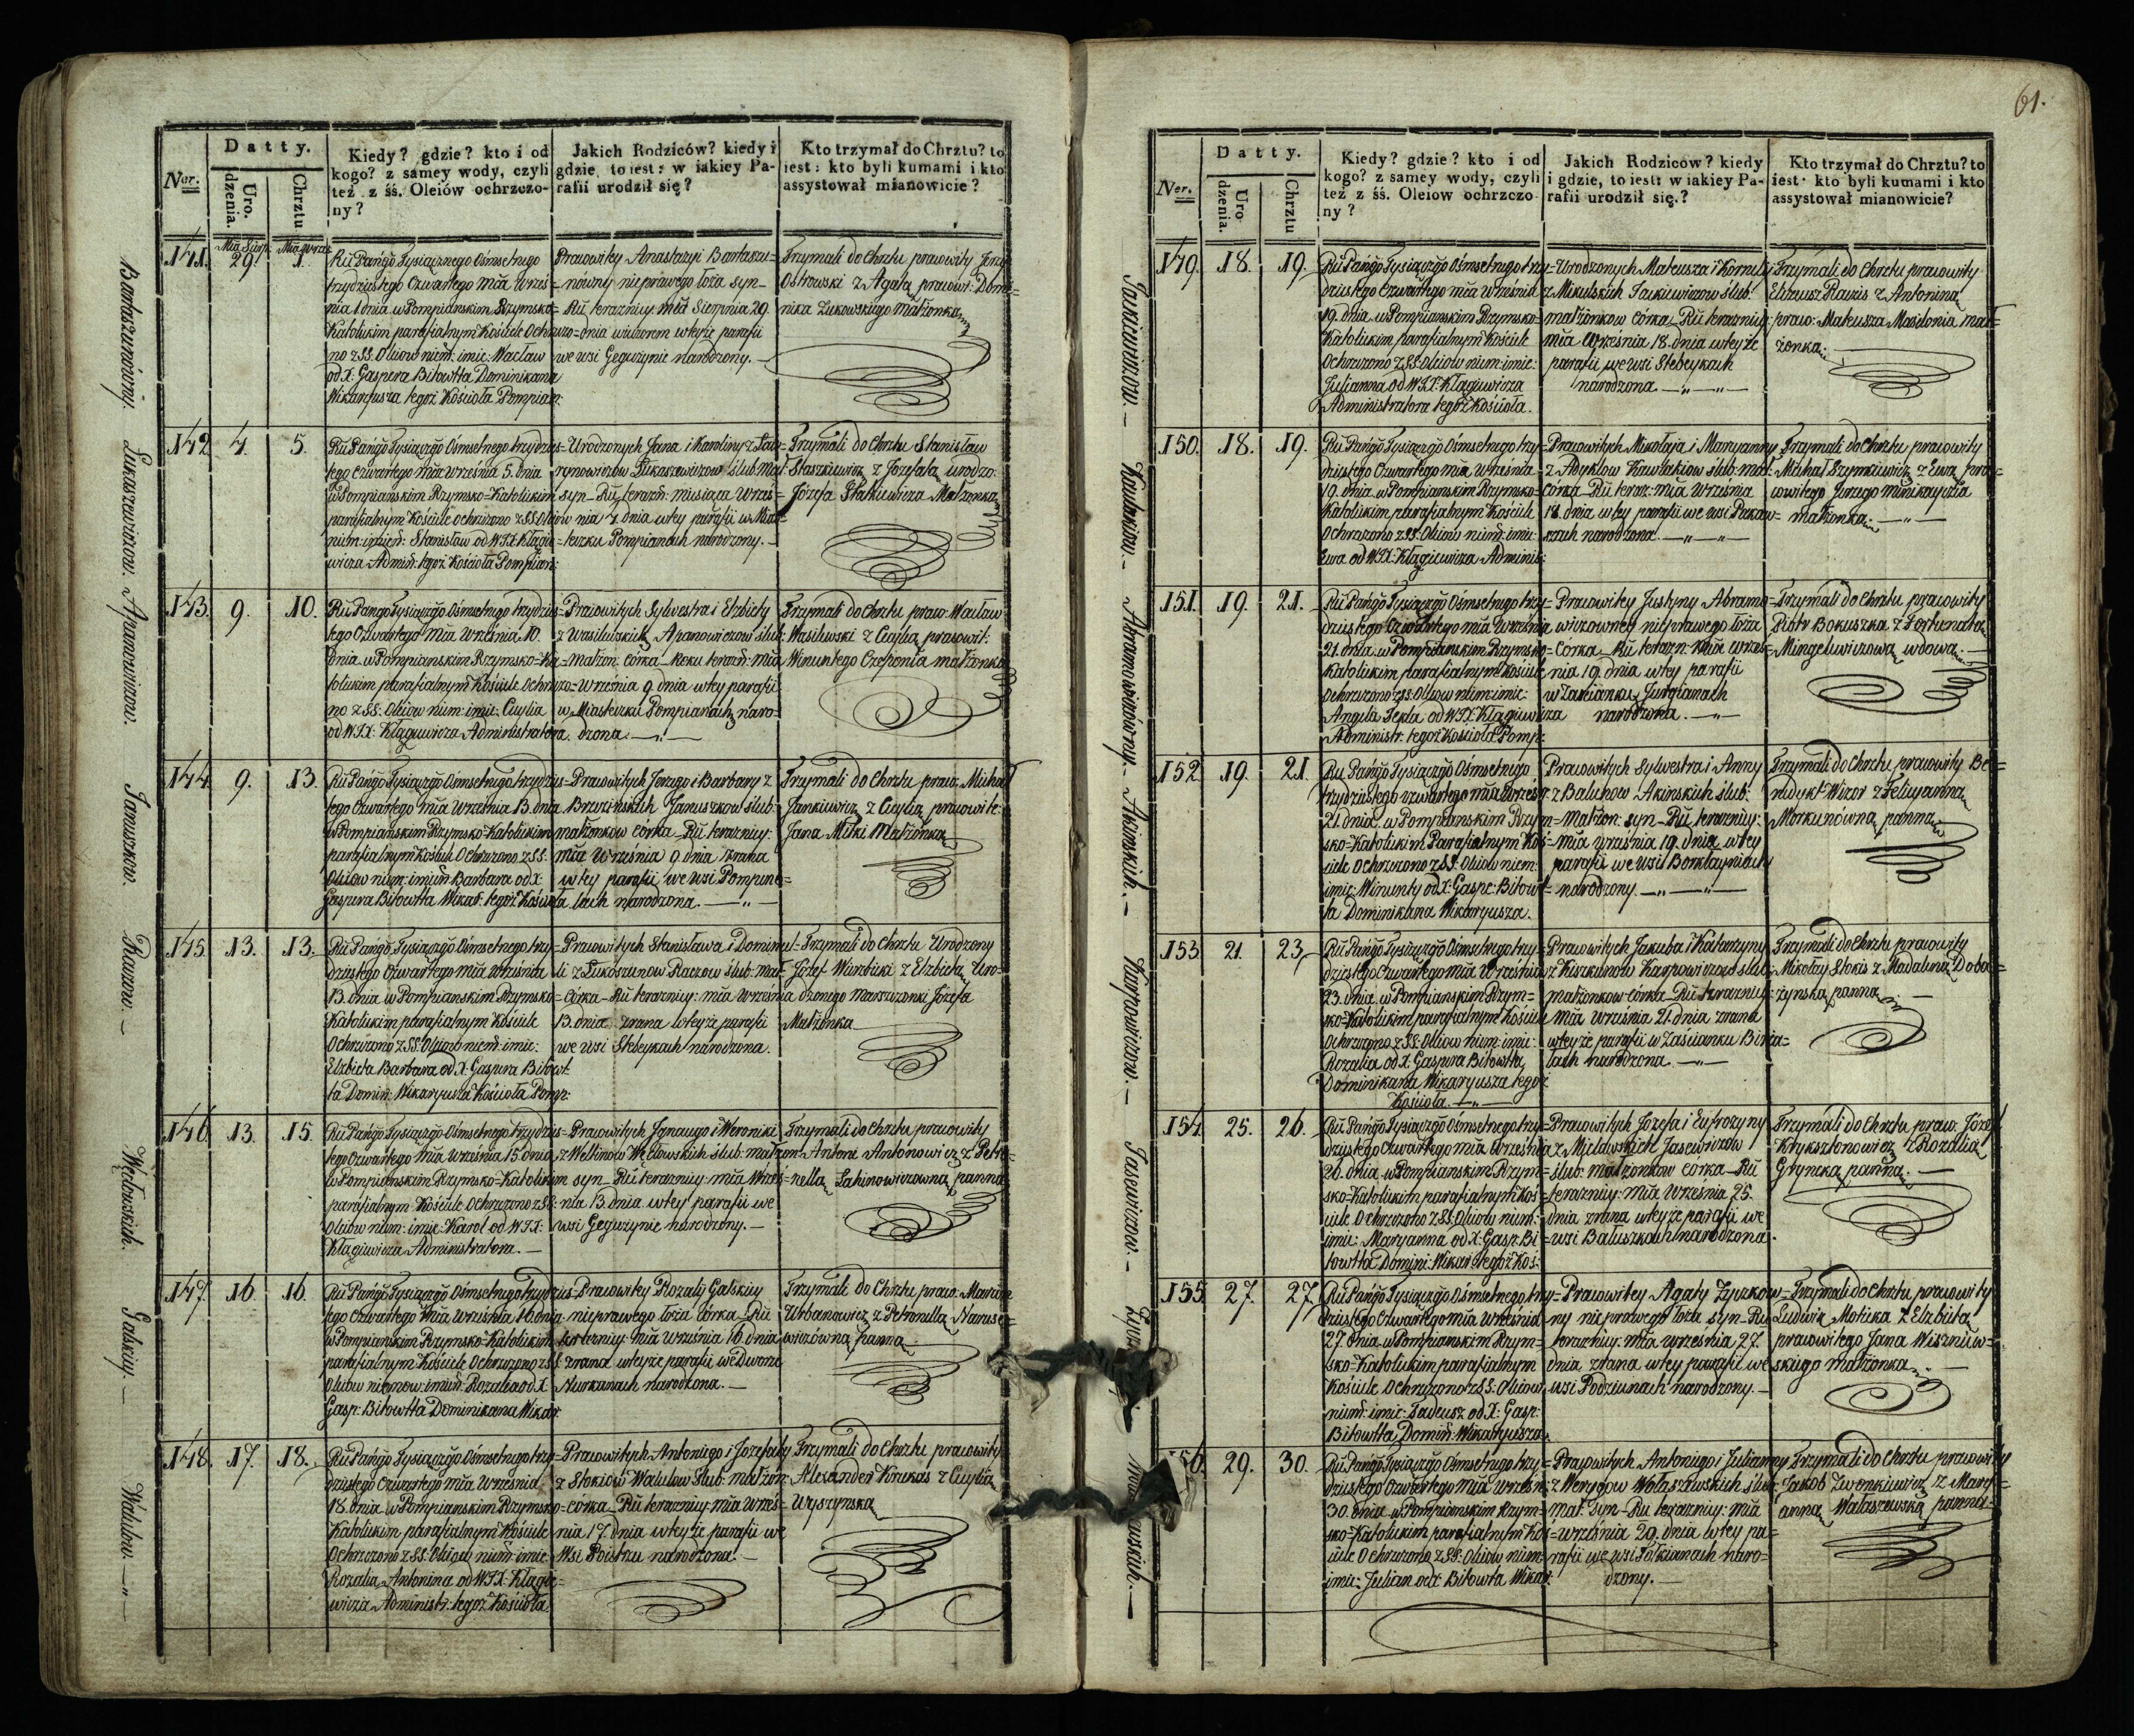 Ner.
Datty.
Uro.
dzenia.
Chrztu
Kiedy? gdzie? kto i od
kogo? z samey wody, czyli
też z śś. Oleiów ochrzczo-
ny?
Jakich Rodziców? kiedy i
gdzie, to iest: w iakiey Pa-
rafii urodził się?
Kto trzymał do Chrztu? to
iest: kto byli kumami i kto
assystował mianowicie?
Bartaszunówny.
141.
Mca Sierp:
29.
Mca Wrze:
1.
Ru Pańgo Tysiącznego Ośmsetnego
trzydziestego Czwartego mca Wrześ=
nia 1 dnia w Pompianskim Rzymsko=
Katolickim parafialnym Kościele Ochrzczo=
no z SS. Oleiow niem: imie: Wacław
od X: Gaspera Bitowtta Dominikana
Wikaryusza tegoż Kościoła Pompian:
Pracowitey Anastazyi Bartaszu=
nówny nieprawego łoża syn_
Ru teraźniey: mca Sierpnia 29.
dnia wieczorem wteyże parafii
we wsi Geguzynie narodzony.
Trzymali do Chrztu pracowity Jerzy
Ostrowski z Agatą pracowi: Domi=
nika Żukowskiego Małżonką
Łukaszewiczow.
142
4.
5.
Ru Pańgo Tysiączgo Ośmsetnego trzydzies=
tego Czwartego mca Września 5. dnia
w Pompianskim Rzymsko=Katolickim
parafialnym Kościele ochrzczono z SS Oleiow
niem: imień: Stanisław od WJX. Kłągie=
wicza Admin: tegoż Kościoła Pompian:
Urodzonych Jana i Karoliny z Ław=
rynowiczów Łukaszewiczow ślub: mał:
syn_ Ru teraźń: miesiąca Wrześ=
nia 4 dnia wtey parafii w Mias=
teczku Pompianach narodzony.
Trzymali do Chrztu Stanisław
Staszkiewicz z Józefatą urodzo:
Józefa Statkiewicza Małżonką
Apanowiczow.
143.
9.
10.
Ru Pańgo Tysiączgo Ośmsetnego trzydzies=
tego Czwartego mca Września 10.
dnia w Pompianskim Rzymsko=Ka=
tolickim parafialnym Kościele Ochrzczo=
no z SS. Oleiow niem: imie: Cecylia
od WJX: Kłągiewicza Administratora.
Pracowitych Sylwestra i Elżbiety
z Wasilewskich Apanowiczow ślub:
małżon: córka_ Roku teraźń: mca
Września 9. dnia wtey parafii
w Miasteczku Pompianach naro=
dzona.
Trzymali do Chrztu praco: Wacław
Wasilewski z Cecylią pracowit:
Wincentego Czeponia małżonką
Januszkow.
144
9.
13.
Ru Pańgo Tysiączgo Ośmsetnego trzydzies=
tego Czwartego mca Września 13. dnia
w Pompianskim Rzymsko=Katolickim
parafialnym Kościele Ochrzczono z SS.
Oleiow niem: imień: Barbara od X:
Gaspera Bitowtta Wikar: tegoż Kościoła
Pracowitych Jerzego i Barbary z
Brzezińskich Januszkow ślub:
małżonkow córka_ Ru teraźniey:
mca Września 9 dnia zrana
wtey parafii we wsi Pompine=
lach narodzona.
Trzymali do Chrztu praco: Michał
Jankiewicz z Cecylią pracowite:
Jana Miłki Małżonką
Raczow.
145.
13.
13.
Ru Pańgo Tysiączgo Ośmsetnego trzy=
dziestego Czwartego mca Września
13. dnia w Pompianskim Rzymsko=
Katolickim parafialnym Kościele
Ochrzczono z SS. Oleiow niem: imie:
Elżbieta Barbara od X. Gaspera Bitowt=
ta Domin: Wikaryusza Kościoła Pomp:
Pracowitych Stanisława i Domice=
li z Łukoszunow Raczow ślub: mał:
Córka_ Ru teraźniey: mca Września
13. dnia zrana wteyże parafii
we wsi Stebeykach narodzona.
Trzymali do Chrztu Urodzony
Józef Wierzbicki z Elżbietą Uro=
dzonego Józefa
Małżonką
Węcłowskich.
146.
13.
15.
Ru Pańgo Tysiączgo Ośmsetnego trzydzies=
tego Czwartego mca Września 15. dnia
w Pompianskim Rzymsko=Katolickim
parafialnym Kościele Ochrzczono z SS:
Oleiow niem: imie: Karol od WJX:
Kłągiewicza Administratora.
Pracowitych Ignacego i Weroniki
z Węcłowskich ślub: małżon:
syn_ Ru teraźniey: mca Wrześ=
nia 13. dnia wtey parafii we
wsi Geguzynie narodzony.
Trzymali do Chrztu pracowity
Antoni Antonowicz z Petro=
nellą panną
Galskiey.
147.
16.
16.
Ru Pańgo Tysiączgo Ośmsetnego trzydzies=
tego Czwartego mca Września 16. dnia
w Pompianskim Rzymsko=Katolickim
parafialnym Kościele Ochrzczono z SS.
Oleiow niemow: imień: Rozalia od X:
Gasp: Bitowtta Dominikana Wikar:
Pracowitey Rozalii Galskiey
nieprawego łoża córka_ Ru
teraźniey: mca Września 16 dnia
zrana wteyże parafii we Dworze
Nurkanach narodzona.
Trzymali do Chrztu praco: Marcin
Urbanowicz z Petronellą Narusze=
wiczówną panną
Walulow.
148.
17.
18.
Ru Pańgo Tysiączgo Ośmsetnego trzy=
dziestego Czwartego mca Września
18. dnia w Pompianskim Rzymsko=
Katolickim parafialnym Kościele
Ochrzczono z SS. Oleiow niem: imie:
Rozalia Antonina od WJX: Kłągie=
wicza Administr: tegoż Kościoła
Pracowitych Antoniego i Józefaty
z Stokiów Walulow ślub: małżon:
córka_ Ru teraźniey: mca Wrześ=
nia 17. dnia wteyże parafii we
Wsi Poistru narodzona.
Trzymali do Chrztu pracowity
Alexander Krukas z Cecylią
Wyszynską
61.
Ner.
Datty.
Uro
dzenia.
Chrztu
Kiedy? gdzie? kto i od
kogo? z samey wody, czyli
też z śś. Oleiow ochrzczo-
ny?
Jakich Rodzicow? kiedy
i gdzie, to iest: w iakiey Pa-
rafii urodził się.?
Kto trzymał do Chrztu? to
iest: kto byli kumami i kto
assystował mianowicie?
Jackiewiczow.
149.
18.
19.
Ru Pańgo Tysiączgo Ośmsetnego trzy=
dziestego Czwartego mca Września
19. dnia w Pompianskim Rzymsko=
Katolickim parafialnym Kościele
Ochrzczono z SS. Oleiow niem: imie:
Julianna od WJX: Kłągiewicza
Administratora tegoż Kościoła.
Urodzonych Mateusza i Kornelii
z Mikulskich Jackiewiczow ślub:
małżonkow córka_ Ru teraźniey:
mca Września 18. dnia wteyże
parafii we wsi Stebeykach
narodzona.
Trzymali do Chrztu pracowity
Elizeusz Rawis z Antoniną
praco: Mateusza Masilonia mał=
żonką.
Kowlakiow.
150.
18.
19.
Ru Pańgo Tysiączgo Ośmsetnego trzy=
dziestego Czwartego mca Września
19. dnia w Pompianskim Rzymsko=
Katolickim parafialnym Kościele
Ochrzczono z SS: Oleiow niem: imie:
Ewa od WJX: Kłągiewicza Adminis:
Pracowitych Mikołaja i Maryanny
z Adyklow Kawlakiow ślub: mał:
Córka_ Ru teraz: mca Września
18. dnia wtey parafii we wsi
narodzona.
Trzymali do Chrztu pracowity
Michał Szymkiewicz z Ewą praco=
witego Jerzego
małżonką.
Abramowiczówny.
151.
19.
21.
Ru Pańgo Tysiączgo Ośmsetnego trzy=
dziestego Czwartego mca Września
21. dnia w Pompianskim Rzymsko=
Katolickim parafialnym Kościele
Ochrzczono z SS. Oleiow niem: imie:
Angela Tekla od WJX: Kłągiewicza
Administr: tegoż Kościoła Pomp:
Pracowitey Justyny Abramo=
wiczowney nieprawego łoża
Córka_ Ru teraźn: mca Wrześ=
nia 19. dnia wtey parafii
w Zaścianku Jurgianach
narodzona.
Trzymali do Chrztu pracowity
Piotr Bokuszka z Fortunatą
Mingelewiczową wdową.
Akinskich.
152.
19.
21.
Ru Pańgo Tysiączgo Ośmsetnego
trzydziestego czwartego mca Wrześn:
21. dnia w Pompianskim Rzym=
sko=Katolickim Parafialnym Koś=
ciele Ochrzczono z SS. Oleiow niem:
imie: Wincenty od X: Gaspe: Bitowt=
ta Dominikana Wikaryusza.
Pracowitych Sylwestra i Anny
z Balunow Akinskich ślub:
Małżon: syn_ Ru teraźniey:
mca września 19. dnia wtey
parafii we wsi
narodzony.
Trzymali do Chrztu pracowity Be=
nedykt Wizor z Felicyanną
Morkunówną panną.
Karpowiczow.
153
21.
23.
Ru Pańgo Tysiączgo Ośmsetnego trzy=
dziestego Czwartego mca Września
23. dnia w Pompianskim Rzym=
sko=Katolickim parafialnym Kościele
Ochrzczono z SS. Oleiow niem: imie:
Rozalia od X: Gaspera Bitowtta
Dominikana Wikaryusza tegoż
Kościoła.
Pracowitych Jakuba i Katarzyny
z Kiszkunow Karpowiczow ślub:
małżonkow córka_ Ru teraźniey:
mca Września 21. dnia zrana
wteyże parafii w Zaścianku Birża=
lach narodzona.
Trzymali do Chrztu pracowity
Mikołay Stokis z Madaleną Dobo=
żynską panną
Jasewiczow.
154.
25.
26.
Ru Pańgo Tysiączgo Ośmsetnego trzy=
dziestego Czwartego mca Września
26. dnia w Pompianskim Rzym=
sko=Katolickim parafialnym Koś=
ciele Ochrzczono z SS. Oleiow niem:
imie: Maryanna od X: Gasp: Bi=
towtta Domini: Wikar: tegoż Koś:
Pracowitych Józefa i Eufrozyny
z Milewskich Jasewiczow
ślub: małżonkow córka_ Ru
teraźniey: mca Września 25.
dnia zrana wteyże parafii we
wsi Baluszkach narodzona.
Trzymali do Chrztu praco: Józef
Krykształowicz z Rozalią
Gryncką panną.
155.
27.
27.
Ru Pańgo Tysiączgo Ośmsetnego trzy=
dziestego Czwartego mca Września
27. dnia w Pompianskim Rzym=
sko=Katolickim parafialnym
Kościele Ochrzczono z SS: Oleiow
niem: imie: Tadeusz od X: Gasp:
Bitowtta Domin: Wikaryusza.
Pracowitey Agaty Życzkow=
ny nieprawego łoża syn_ Ru
teraźniey: mca września 27.
dnia zrana wtey parafii we
wsi Podziunach narodzony.
Trzymali do Chrztu pracowity
Ludwik Motieka z Elżbietą
pracowitego Jana Wiszniew=
skiego małżonką.
156.
29.
30.
Ru Pańgo Tysiączgo Ośmsetnego trzy=
dziestego Czwartego mca Wrześn:
30. dnia w Pompianskim Rzym=
sko=Katolickim parafialnym Koś=
ciele Ochrzczono z SS: Oleiow niem:
imie: Julian od X: Bitowtta Wikar:
Pracowitych Antoniego i Julianny
z Werygow Wołaszewskich ślub:
Mał: syn_ Ru teraźniey: mca
września 29. dnia wtey pa=
rafii we wsi Tołkianach naro=
dzony.
Trzymali do Chrztu pracowity
Jakob Zwonkiewicz z Mary=
anną Wałaszewską panną.